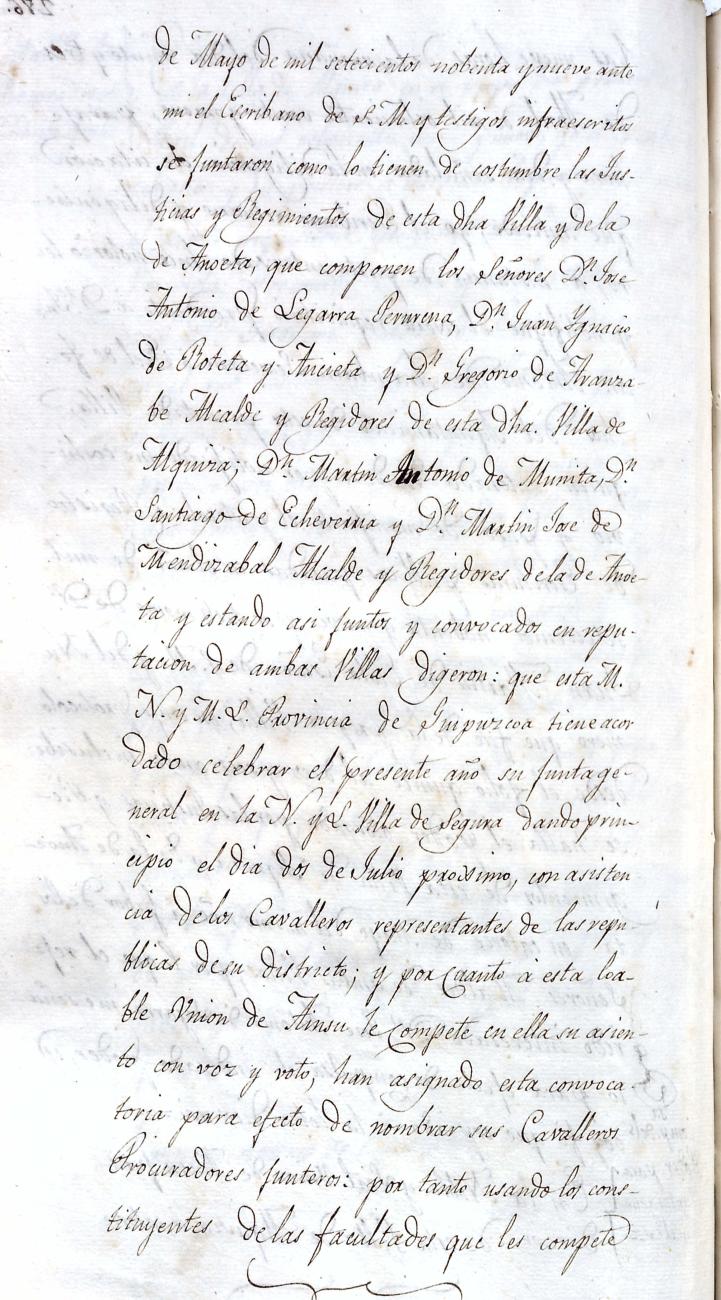 de Mayo de mil setecientos nobenta y nueve ante
mi el Escribano de S. M. y testigos infraescritos
se juntaron como lo tienen de costumbre las Jus-
ticias y Regimientos de esta dha Villa y de la
de Anoeta, que componen los Señores Dn. Jose
Antonio de Legarra Perurena, Dn. Juan Ygnacio
de Roteta y Ancieta y Dn. Gregorio de Aranza-
be Alcalde y Regidores de esta dha. Villa de
Alquiza; Dn. Martin Antonio de Munita, Dn.
Santiago de Echeverria y Dn. Martin Jose de
Mendizabal Alcalde y Regidores de la de Anoe-
ta y estando asi juntos y convocados en repu-
tacion de ambas Villas digeron: que esta M.
N. y M. L. Provincia de Guipuzcoa tiene acor
dado celebrar el presente año su junta ge-
neral en la N. y L. Villa de Segura dando prin-
cipio el dia dos de Julio proximo, con asisten
cia de los Cavalleros representantes de las repu-
blicas de su districto; y por cuanto à esta loa-
ble Union de Ainsu le compete en ella su asien-
to con voz y voto, han asignado esta convoca-
toria para efecto de nombrar sus Cavalleros
Procuradores junteros: por tanto usando los cons-
tituyentes de las facultades que les compete